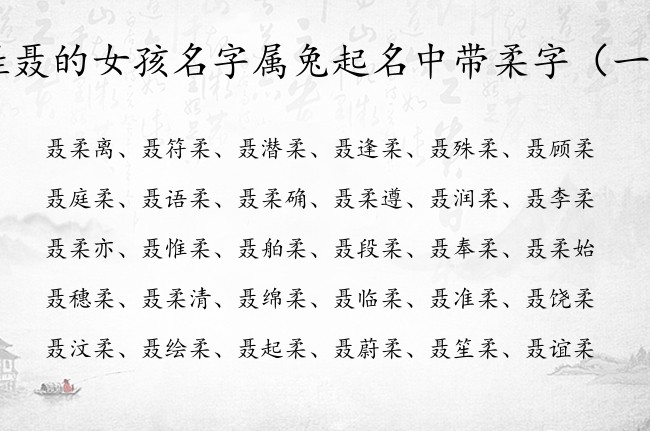 姓聂的女孩名字属兔起名中带柔字（一
聂柔离、聂符柔、聂潜柔、聂逢柔、聂殊柔、聂顾柔
聂庭柔、聂语柔、聂柔确、聂柔遵、聂润柔、聂李柔
聂柔亦、聂惟柔、聂舶柔、聂段柔、聂奉柔、聂柔始
聂穗柔、聂柔清、聂绵柔、聂临柔、聂准柔、聂饶柔
聂汶柔、聂绘柔、聂起柔、聂蔚柔、聂笙柔、聂谊柔